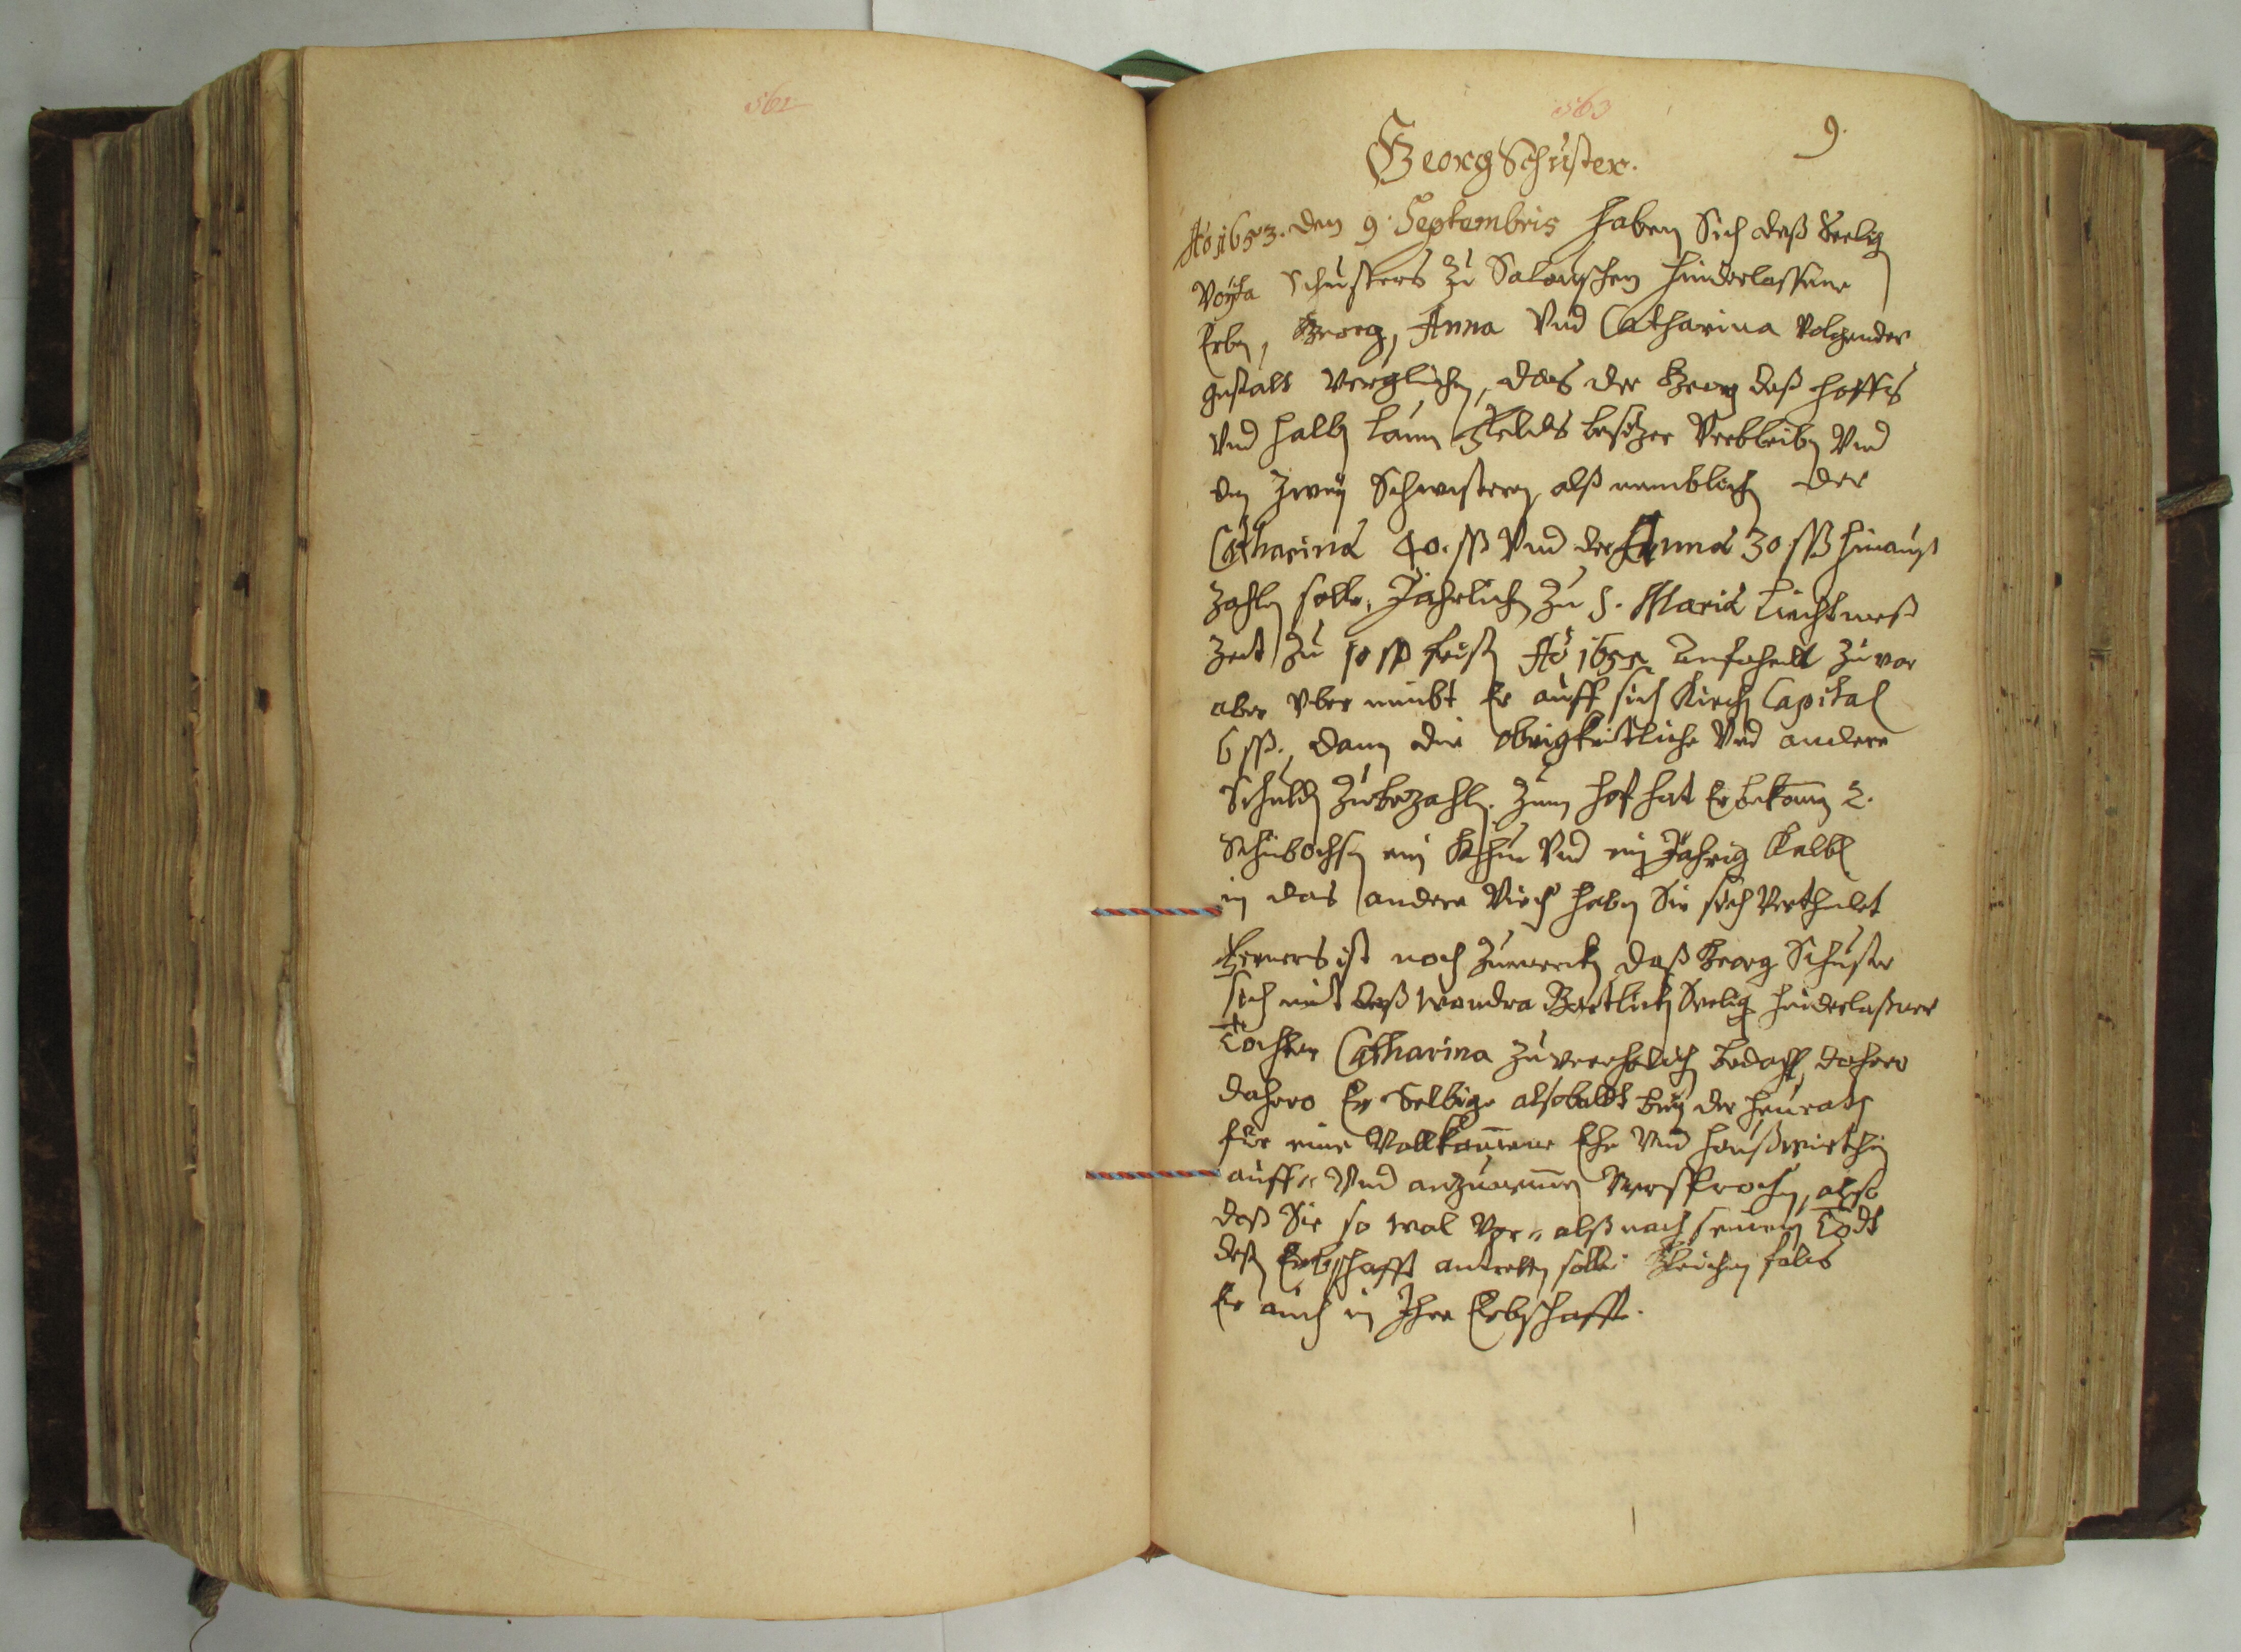 562
563
9.
Georg Schuster.
Aō 1653. den 9. Septembris haben Sich deß Seelig
Voyta Schusters zu Salonschen hinderlassene
Erben, Georg, Anna Vnd Catharina volgender
gestalt verglichen, das der Georg deß hoffs
Vnd halb Lann Feldts besitzer Verbleiben Vnd
den Zweÿ Schwestern, alß namblich der
Catharina 40. ß Vnd der Anna 30 ß hinauß
zahlen solle, Jahrlichen zu S. Maria Liechtmeß
Zeit zu 10 ß frist Aō 1655 Anfahend zuvor
aber vber nimbt Er auff sich Kirchen Capital
6 ß., dann die Obrigkeitliche Vnd andere
Schulden Zubezahlen. Zum hof hat Er bekommen 2.
Schubochsen ein Khue Vnd ein Jahrig Kalbl
in das andere Viech haben Sie sich Verthailet
Ferners ist noch Zumerckhen daß Georg Schuster
sich mit deß Wondra Seelig hinderlaßner
Tochter Catharina zuverehelichen bedacht, dahero
dahero Er Selbige alsobaldt beÿ der heürath
für eine Vollkommene Ehe Vnd haußwirthin
auff- Vnd anzunemmen Versprochen, also
daß Sie so wol Vor- alß nach seinem Todt
deßen Erbschafft antretten solle Gleichen fals
Er auch in Ihre Erbschafft.